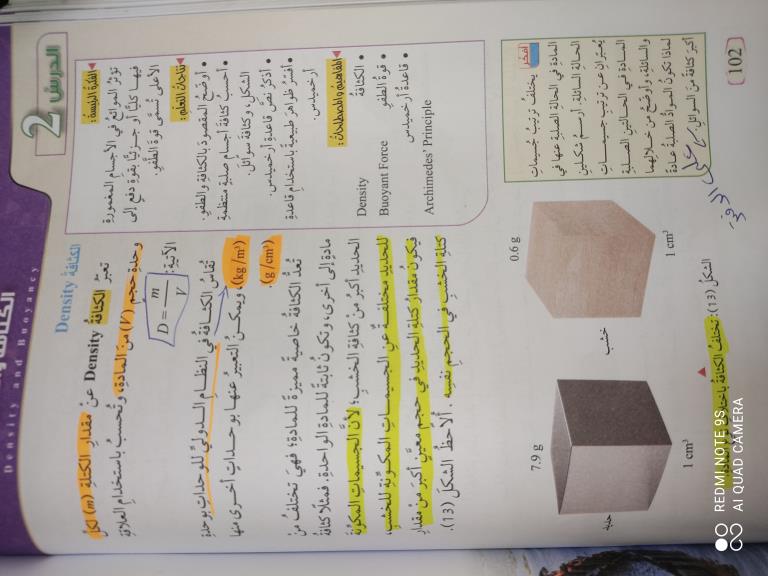 الدرس 2
Density and Buoyancy
◀ الفكرة الرئيسة :
تؤثرُ الموائعُ في الأجسامِ المغمورةِ
فيها كليًّا أو جزئيًّا بقوةِ دفعٍ إلى
الأعلى تُسمّى قوةَ الطفْوِ.
◀ نتاجات التعلم :
• أوضّحُ المقصودَ بالكثافةِ والطفْوِ.
• أحسبُ كثافةَ أجسامٍ صلبةٍ منتظمةِ
الشكلِ، وكثافةَ سوائلَ.
• أذكرُ نصَّ قاعدةِ أرخميدس.
• أفسّرُ ظواهرَ طبيعيةً باستخدامِ قاعدةِ
أرخميدس.
◀ المفاهيم والمصطلحات :
• الكثافة Density
• قوة الطفو Buoyant Force
• قاعدة أرخميدس Archimedes' Principle
أفكر: يختلفُ ترتيبُ جُسيماتِ
المادةِ في الحالةِ الصلبةِ عنها في
الحالةِ السائلةِ. أرسمُ شكلينِ
يُعبّرانِ عن ترتيبِ جسيماتِ
المادةِ في الحالتينِ الصلبةِ
والسائلةِ، وأوضّحُ من خلالِهما
لماذا تكونُ الموادُّ الصلبةُ عادةً
أكبرَ كثافةً من السوائلِ.
102
الكثافة Density
تعبّرُ الكثافةُ Density عنْ مقدارِ الكتلةِ (m) لكلِّ
وحدةِ حجمٍ (V) منَ المادةِ، وتُحسبُ باستخدامِ العلاقةِ
الآتيةِ:
D = m/V
تُقاسُ الكثافةُ في النظامِ الدوليِّ للوحداتِ بوحدةِ
(kg/m³)، ويمكنُ التعبيرُ عنها بوحداتٍ أُخرى منها
(g/cm³).
تُعدُّ الكثافةُ خاصيةً مميزةً للمادةِ؛ فهيَ تختلفُ منْ
مادةٍ إلى أخرى، وتكونُ ثابتةً للمادةِ الواحدةِ. فمثلًا كثافةُ
الحديدِ أكبرُ منْ كثافةِ الخشبِ؛ لأنَّ الجسيماتِ المكوّنةَ
للحديدِ مختلفةٌ عنِ الجسيماتِ المكوّنةِ للخشبِ،
فيكونُ مقدارُ كتلةِ الحديدِ في حجمٍ معيّنٍ أكبرَ منْ مقدارِ
كتلةِ الخشبِ في الحجمِ نفسِهِ. ألاحظُ الشكلَ (13).
0.6 g
1 cm³
خشب
7.9 g
1 cm³
حديد
الشكل (13): تختلفُ الكثافةُ
REDMI NOTE 9S
AI QUAD CAMERA